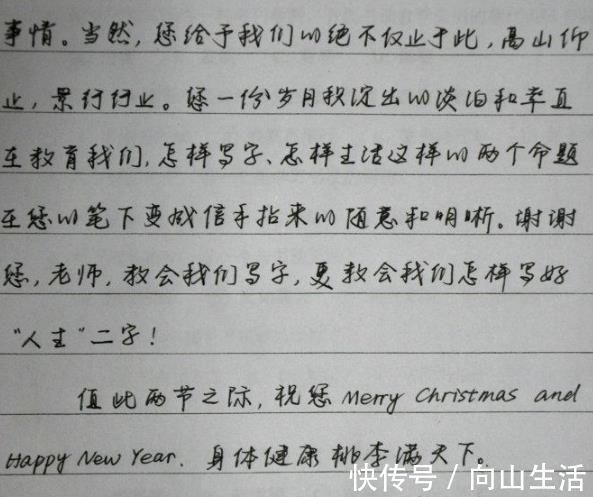 事情。当然，您给予我们的绝不仅止于此，高山仰
止，景行行止。您一份岁月积淀出的淡泊和率直
在教育我们，怎样写字、怎样生活这样的两个命题
在您的笔下变成信手拈来的随意和明晰。谢谢
您，老师，教会我们写字，更教会我们怎样写好
“人生”二字！
值此两节之际，祝您 Merry Christmas and
Happy New Year. 身体健康 桃李满天下。
快传号 / 向山生活